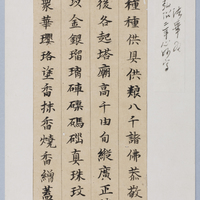 種種供具供養八千諸佛恭敬
後各起塔廟高千由旬縱廣正
以金銀瑠璃硨磲碼碯真珠玫
衆華瓔珞塗香抹香燒香繒蓋